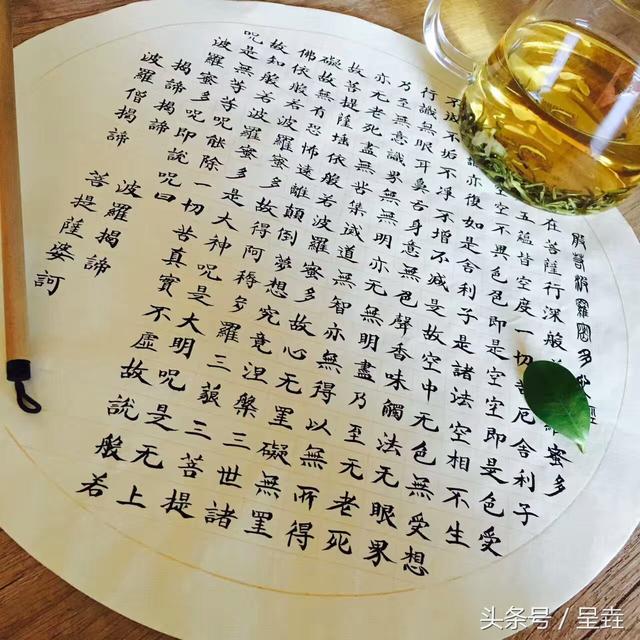 般若波羅蜜多心經
在菩薩行深般羅蜜多
五蘊皆空度一切苦厄舍利子
空不異色色即是空空即是色受
識亦復如是舍利子是諸法空相不生
不滅不垢不淨不增不減是故空中无色無受想
行識無眼耳鼻舌身意無色聲香味觸法无眼界
乃至無意識界無無明亦无無明盡乃至无老死
亦无老死盡無苦集滅道無智亦無得以無所得
故菩提薩埵依般若波羅蜜多故心无罣礙無罣
礙故無有恐怖遠離顛倒夢想究竟涅槃三世諸
佛依般若波羅蜜多故得阿耨多羅三藐三菩提
故知般若波羅蜜多是大神呪是大明呪是无上
呪是無等等呪能除一切苦真實不虛故說般若
波羅蜜多呪即說呪曰
揭諦揭諦 波羅揭諦
波羅僧揭諦 菩提薩婆訶
头条号 / 呈垚